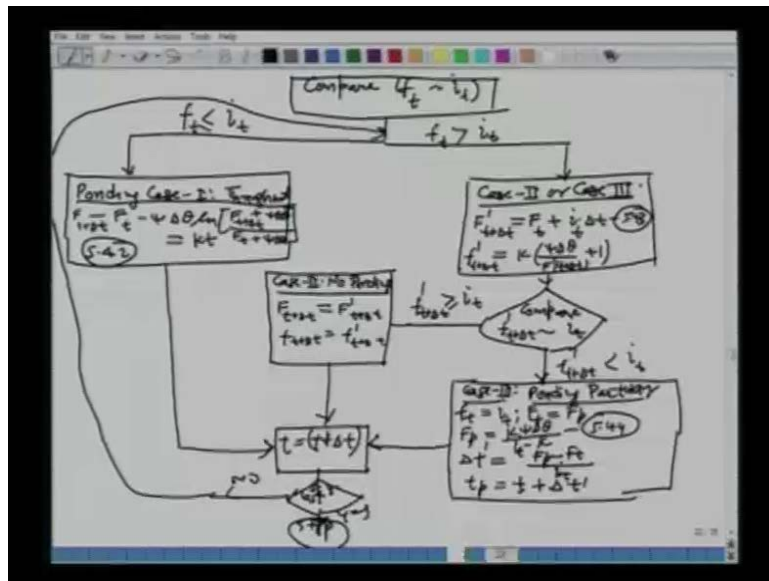 File Edit View Insert Actions Tools Help
Compare (f_t ~ i_t)
f_t ≤ i_t
f_t > i_t
Ponding Case-I: Throughout
F_{t+Δt} = F_t - ψ Δθ ln [F_{t+Δt} + ψΔθ / F_t + ψΔθ]
= Kt
5.42
Case-II or Case III:
F'_{t+Δt} = F_t + i_t Δt - 5.8
f'_{t+Δt} = K (ψΔθ / F'_{t+Δt} + 1)
Case-II: No Ponding
F_{t+Δt} = F'_{t+Δt}
f_{t+Δt} = f'_{t+Δt}
f'_{t+Δt} ≥ i_t
Compare
f'_{t+Δt} ~ i_t
f'_{t+Δt} < i_t
Case-III: Ponding
f_t = i_t; F_t = F_p
F_p = KψΔθ / i_t - K - 5.44
Δt' = F_p - F_t / i_t
t_p = t + Δt'
t = (t + Δt)
NO
yes
Stop